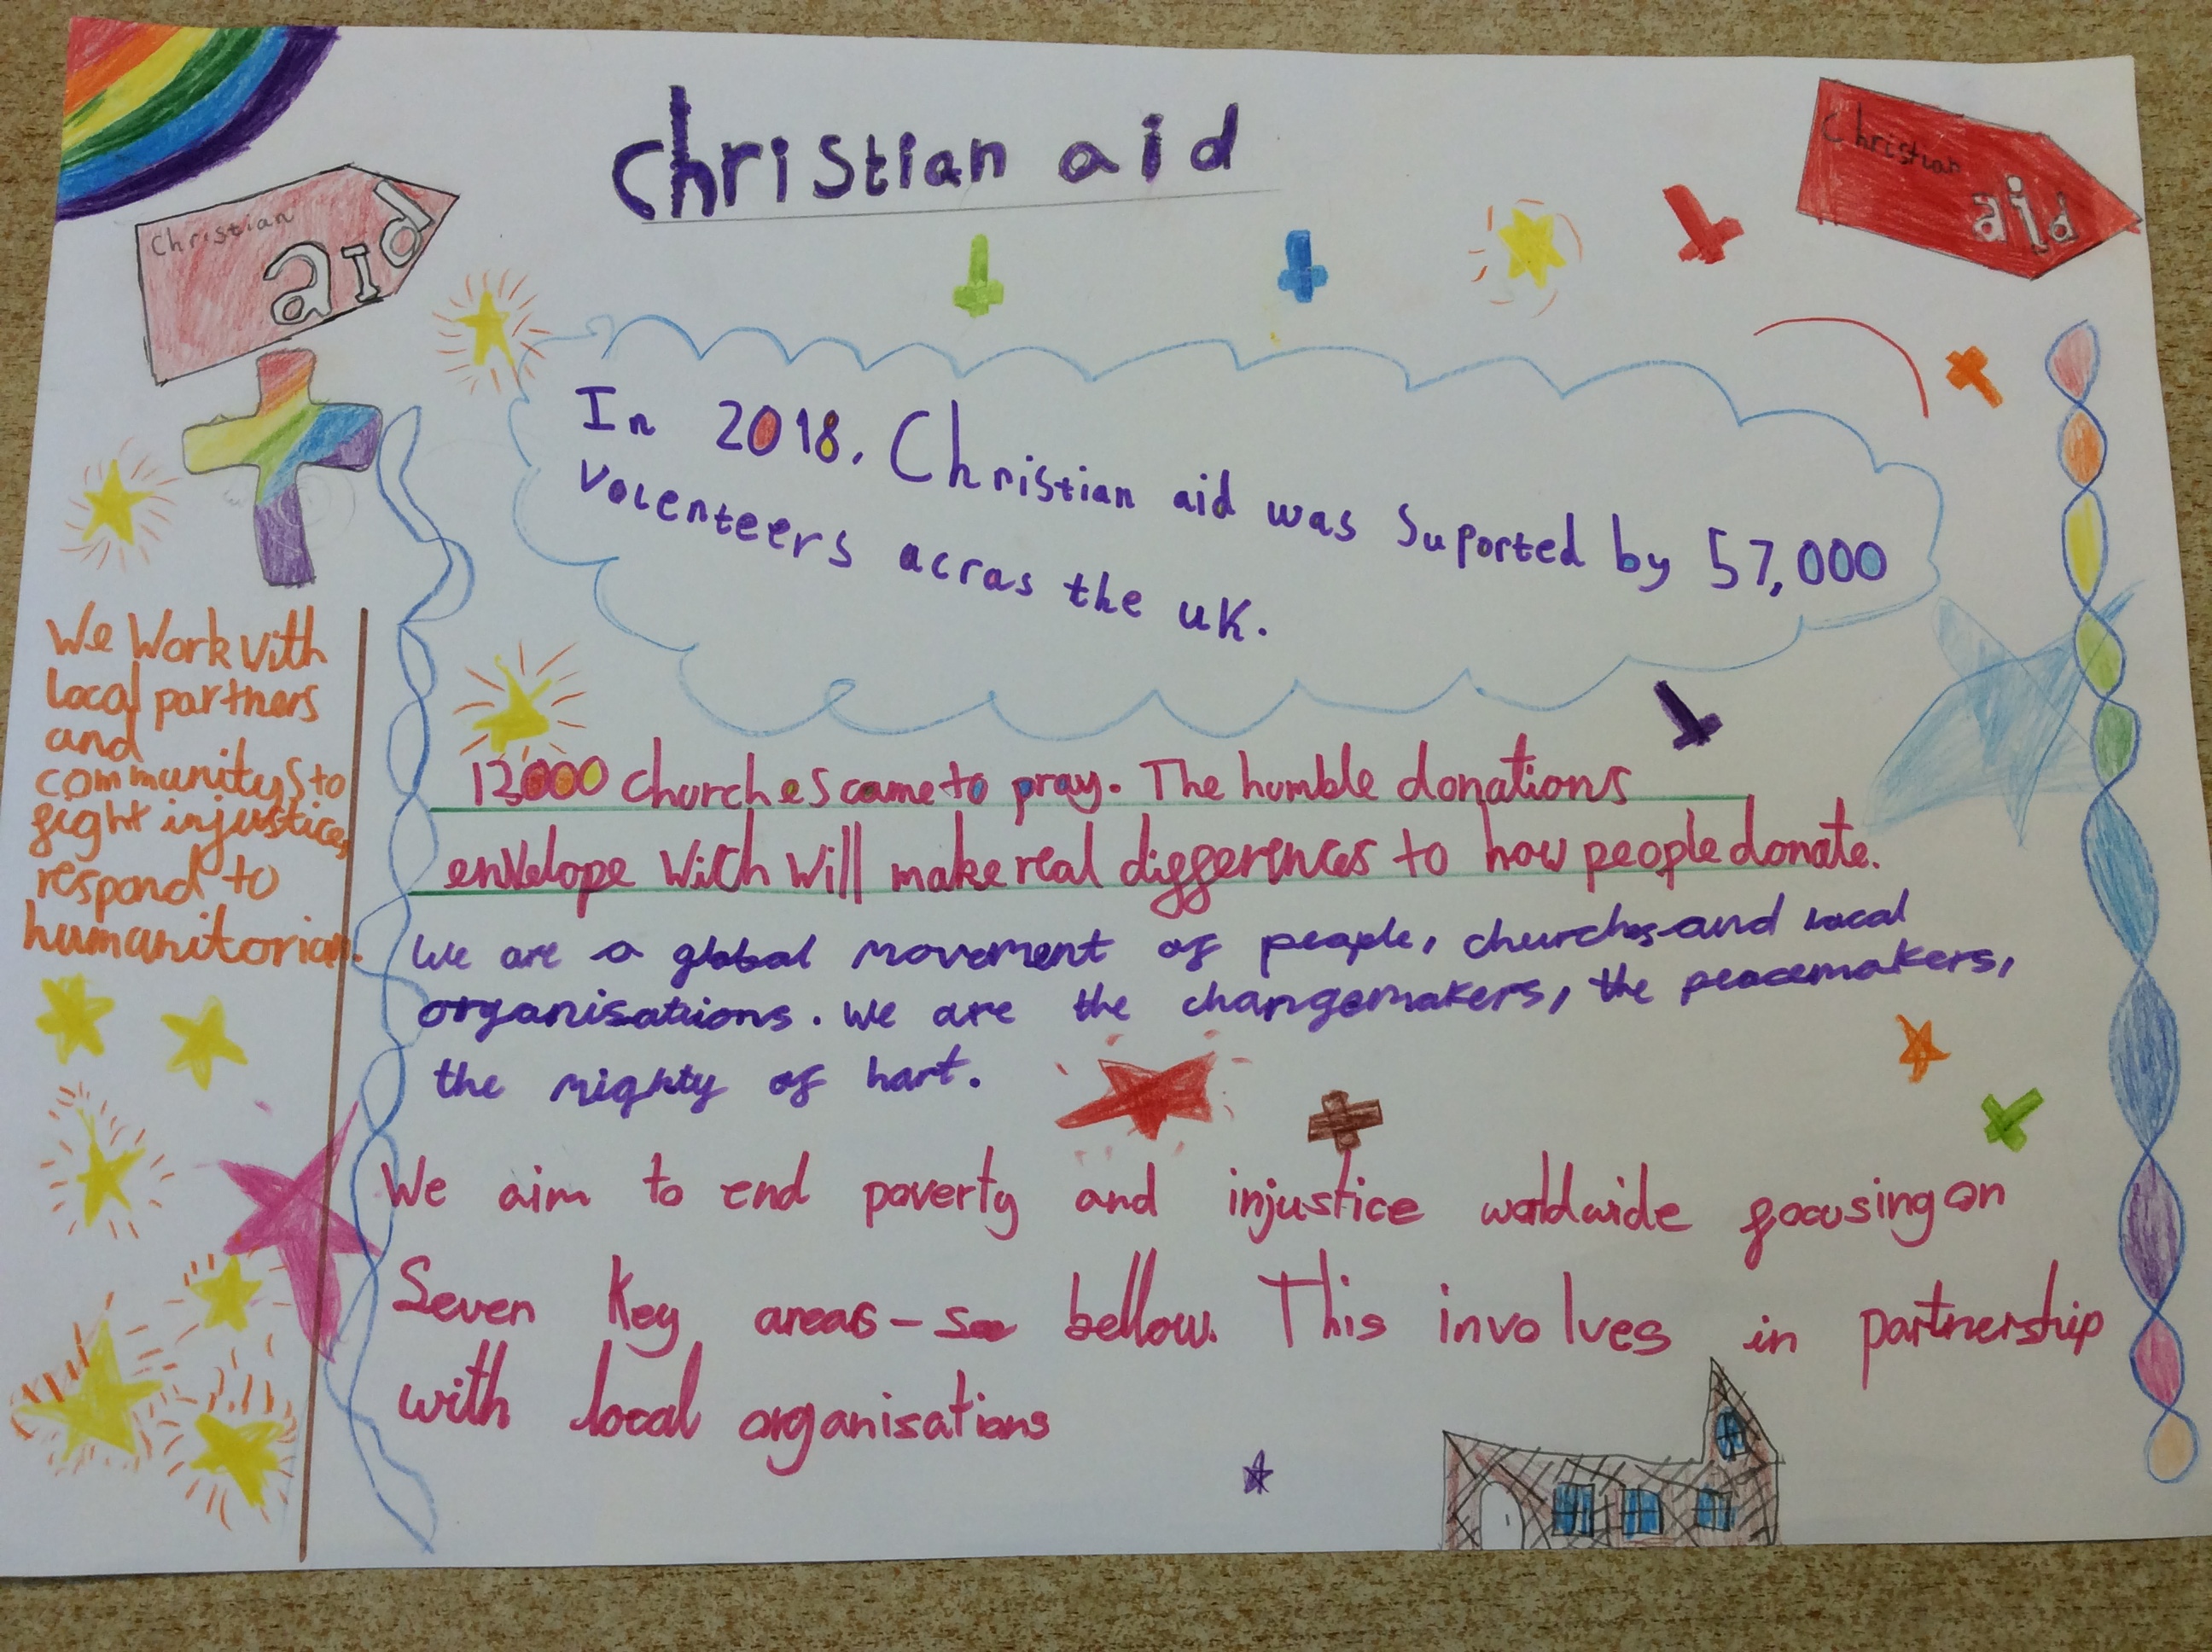 Christian aid
Christian
aid
Christian
aid
In 2018, Christian aid was Suported by 57,000
Volenteers acras the uK.
We Work with
Local partners
and
communitys to
fight injustice,
respond to
humanitorian.
13000 churches came to pray. The humble donations
envelope wich will make real differences to how people donate.
We are a global movement of people, churches and local
organisations. We are the changemakers, the peacemakers,
the mighty of hart.
We aim to end poverty and injustice worldwide focusing on
Seven Key areas - see bellow. This involves in partnership
with local organisations